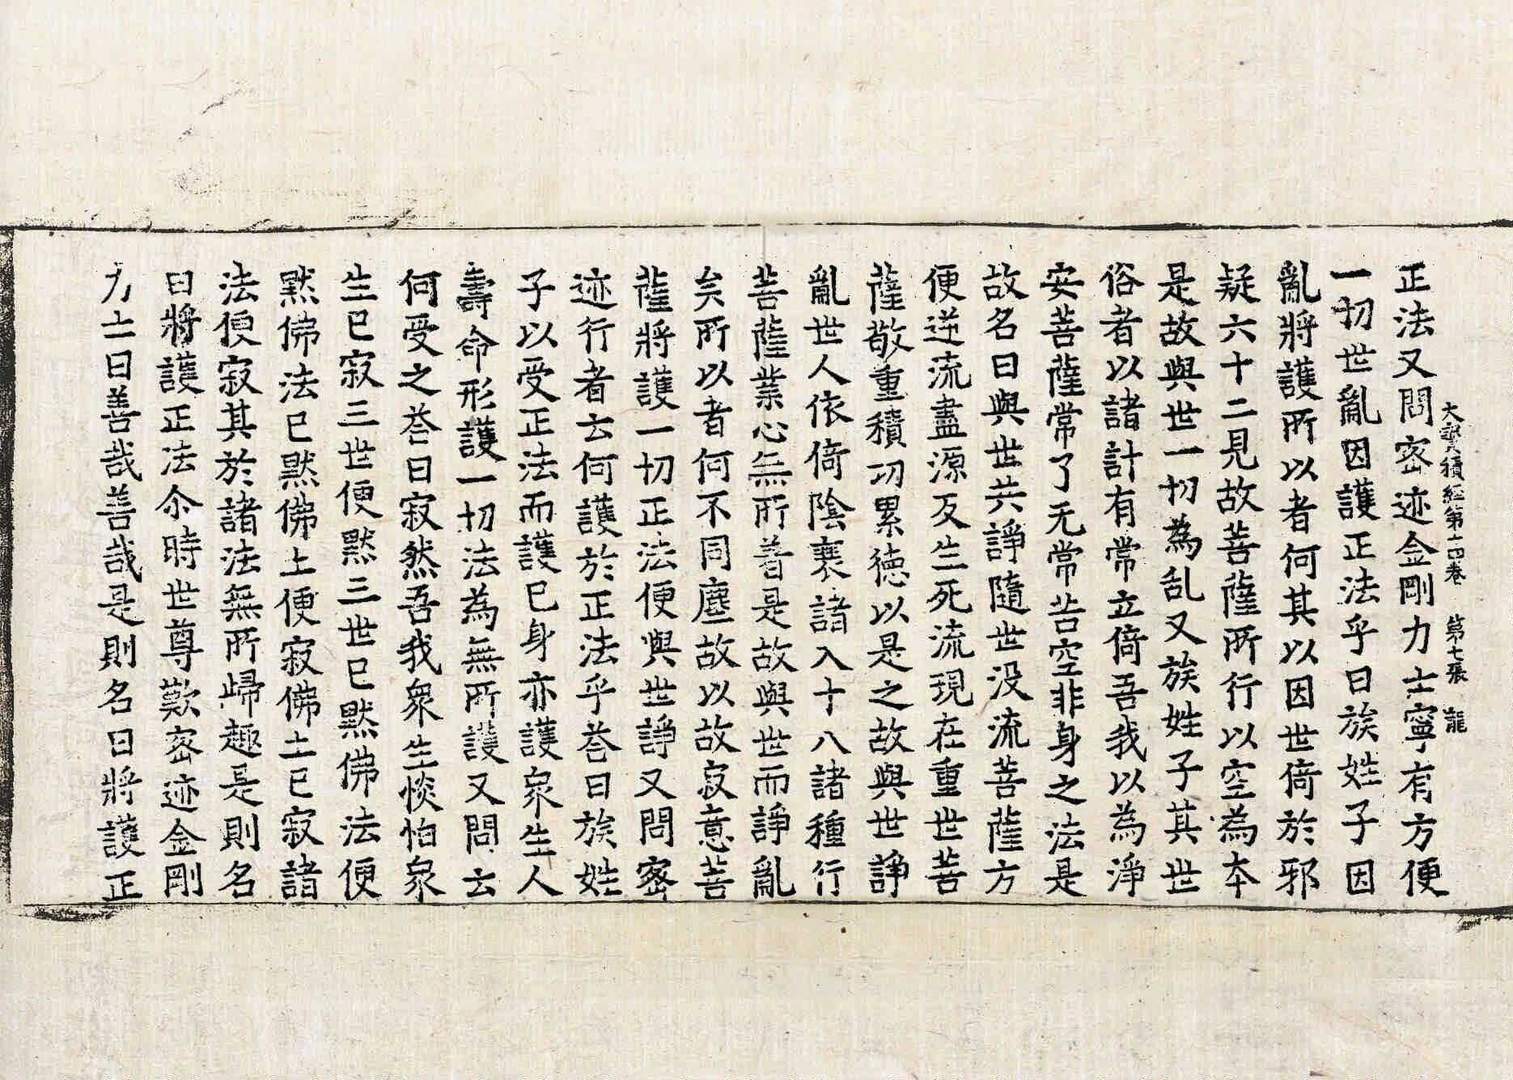 大寶積經第十四卷　第七張　龍
正法又問密迹金剛力士寧有方便
一切世亂因護正法乎曰族姓子因
亂將護所以者何其以因世倚於邪
疑六十二見故菩薩所行以空為本
是故與世一切為乱又族姓子其世
俗者以諸計有常立倚吾我以為淨
安菩薩常了无常苦空非身之法是
故名曰與世共諍隨世没流菩薩方
便逆流盡源反生死流現在重世菩
薩敬重積功累德以是之故與世諍
亂世人依倚陰衰諸入十八諸種行
菩薩業心無所著是故與世而諍亂
矣所以者何不同塵故以故寂意菩
薩將護一切正法便與世諍又問密
迹行者云何護於正法乎荅曰族姓
子以受正法而護已身亦護衆生人
壽命形護一切法為無所護又問云
何受之荅曰寂然吾我衆生惔怕衆
生已寂三世便黙三世已黙佛法便
黙佛法已黙佛土便寂佛土已寂諸
法便寂其於諸法無所歸趣是則名
曰將護正法尒時世尊歎密迹金剛
力士曰善哉善哉是則名曰將護正